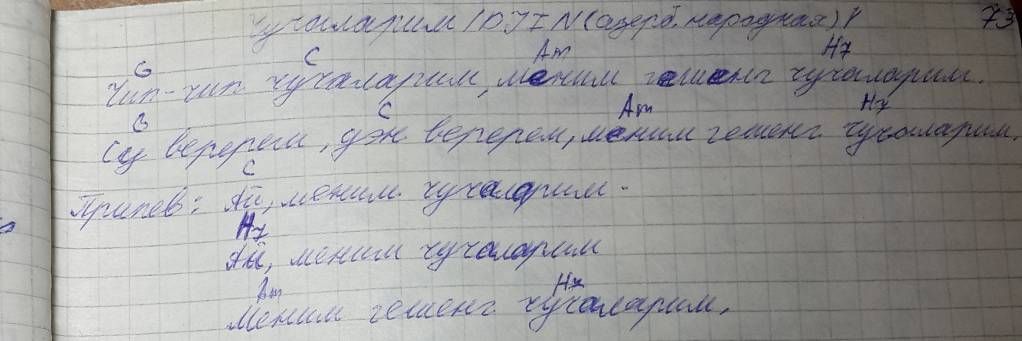 Чучыларим (азерб. народная) 73
G C Am H7
Чип-чип чучаларим, меним гешенг чучаларим.
G C Am H7
Су веререм, дэн веререм, меним гешенг чучыларим.
C
Припев: Ай, меним чучалари.
H7
Ай, меним чучаларим
Am H7
Меним гешенг чучаларим.